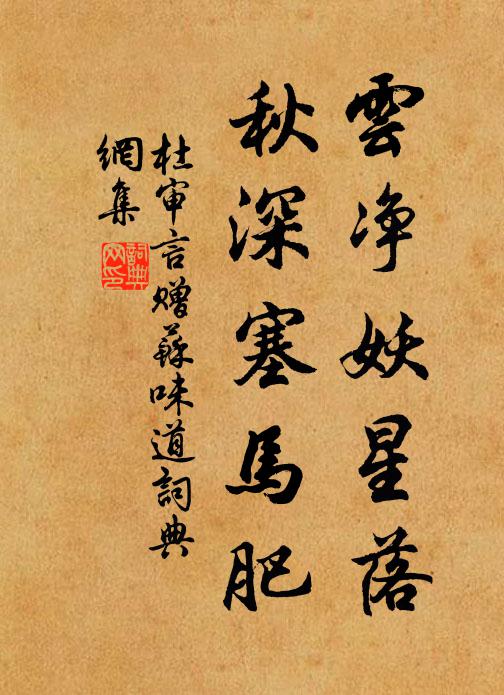 雲净妖星落
秋深塞馬肥
杜审言贈蘇味道詞典
網集
詞典
网印